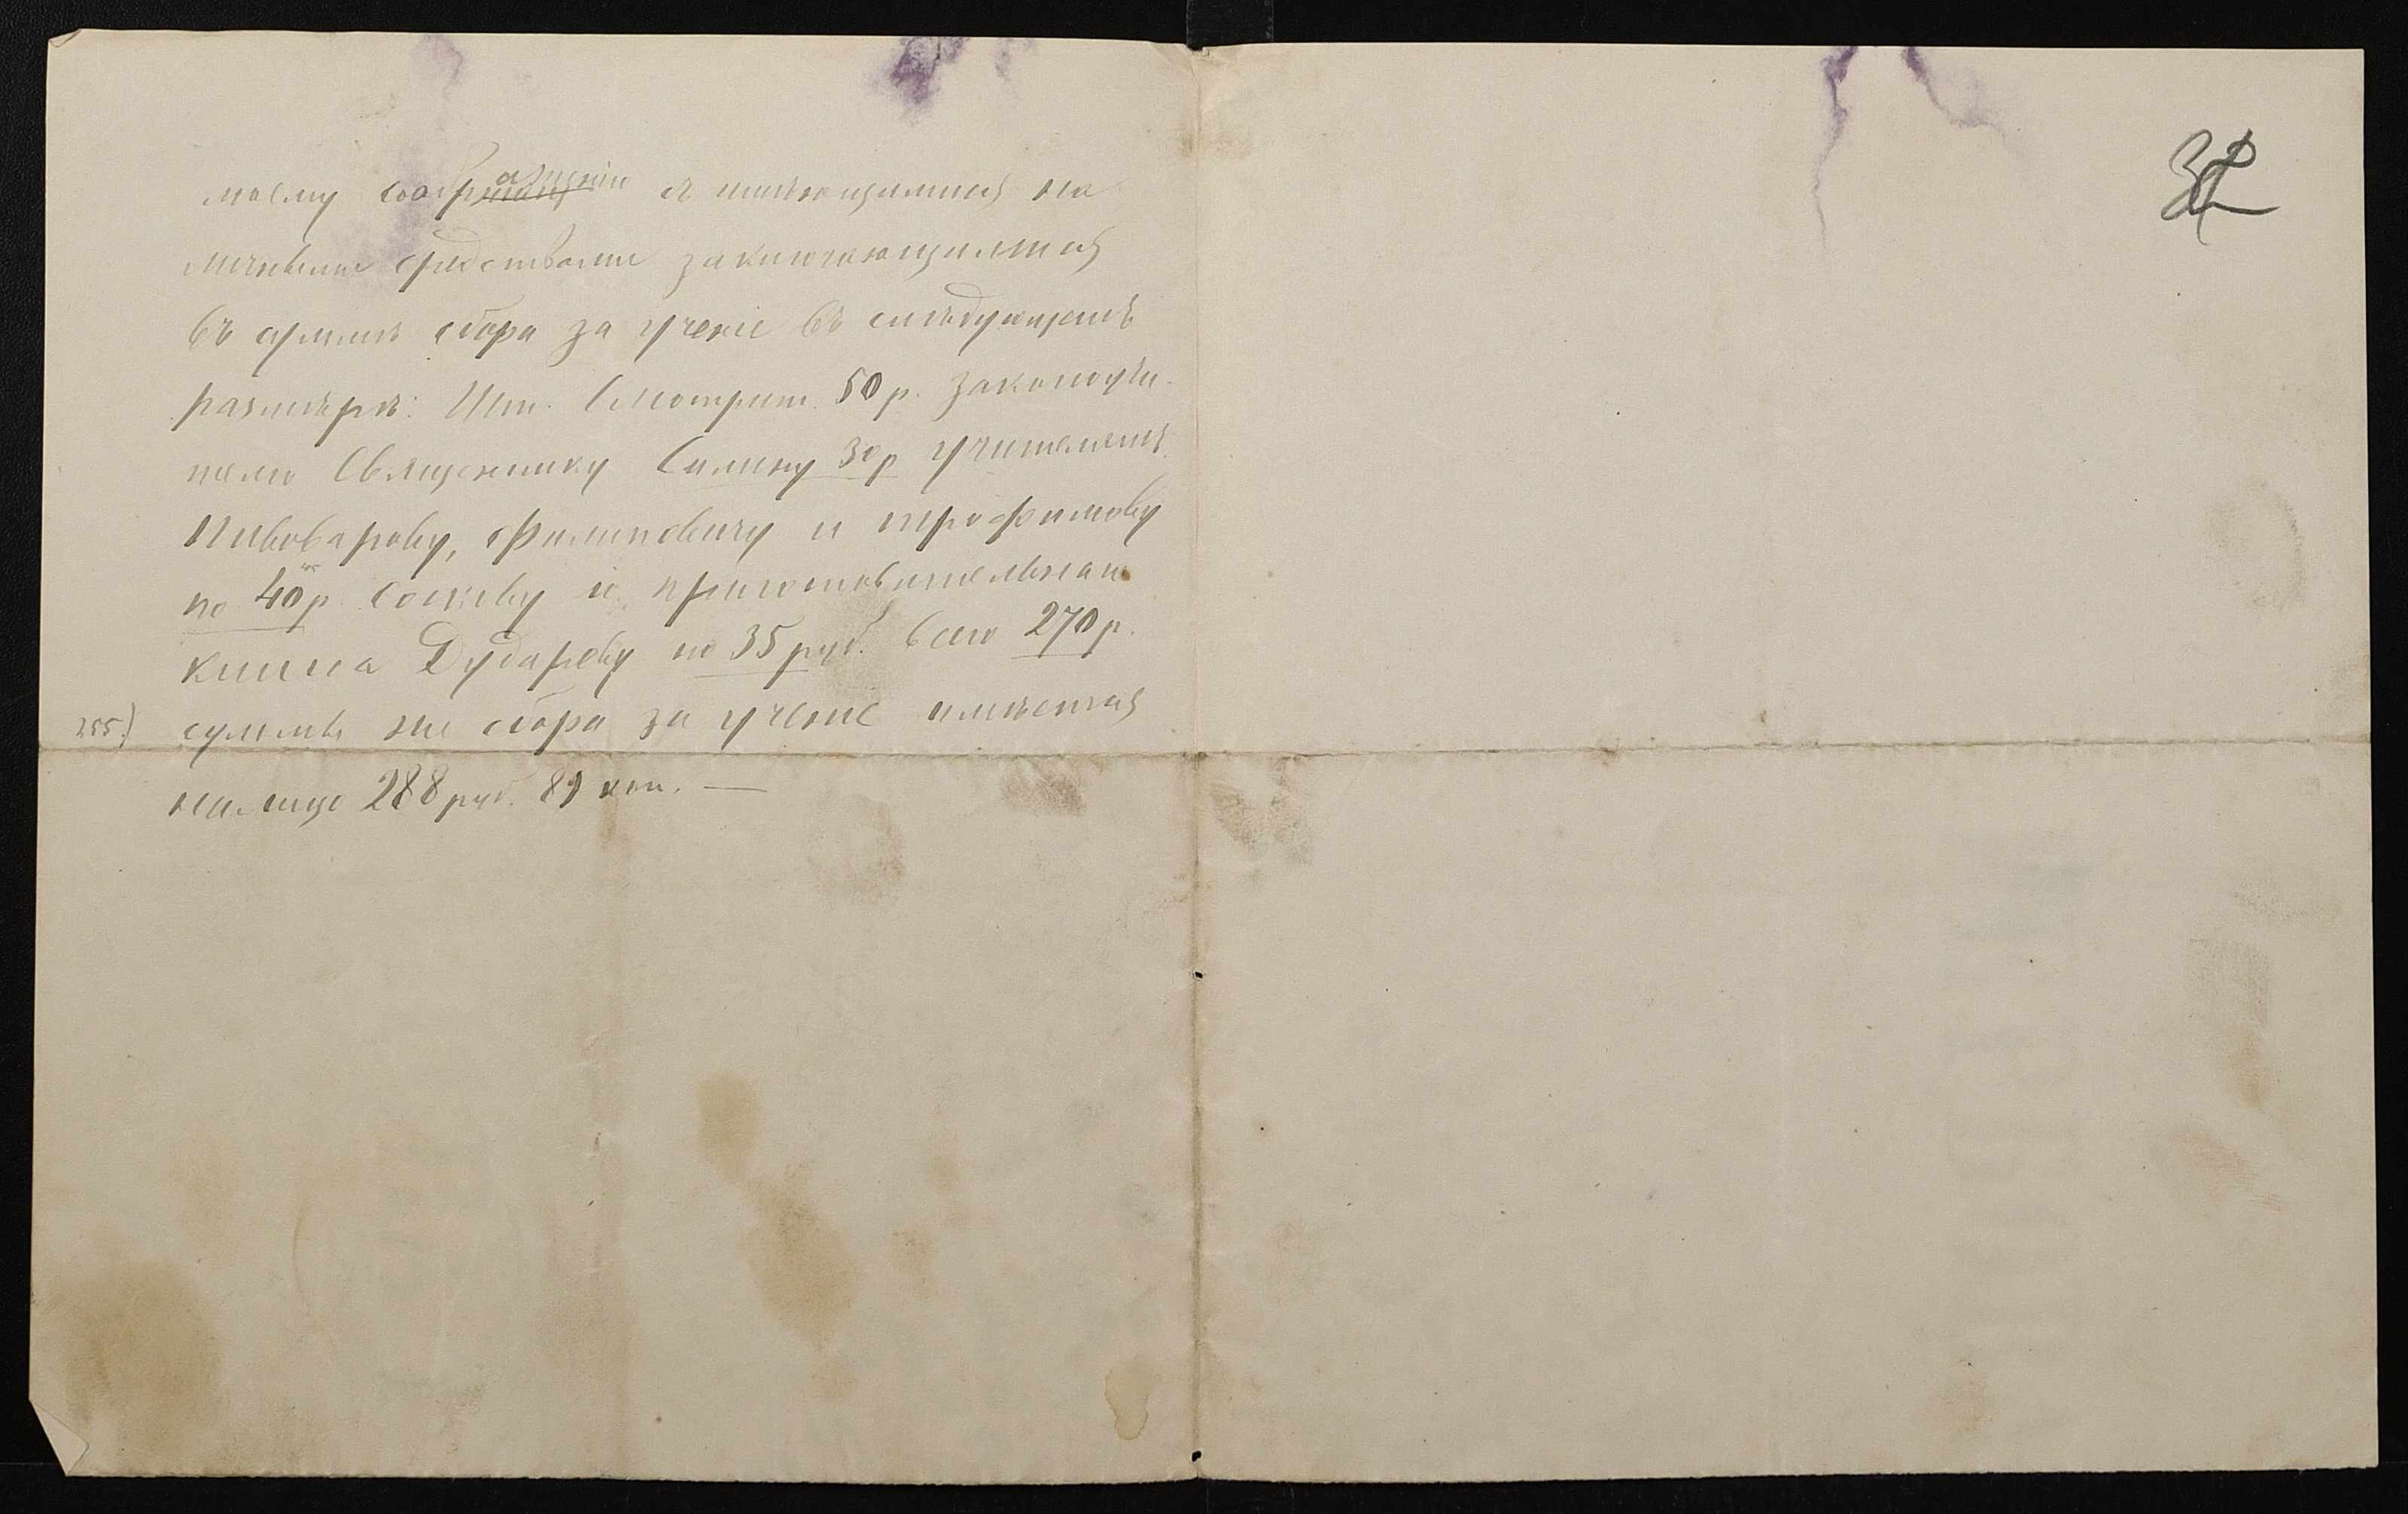 32
моему соображенiю съ имѣющимися на
личными средствами заключающимися
въ суммѣ сбора за ученiе въ слѣдующемъ
размѣрѣ: Шт. Смотрит. 50 р. Законоучи-
телю Священнику Силину 30 р учителямъ
Пивоварову, Филиповичу и Трофимову
по 40 р и приготовительнаго
класса Дудареву по 35 руб. всего 270 р.
255.) суммы же сбора за ученiе имѣется
налицо 288 руб. 89 коп. —